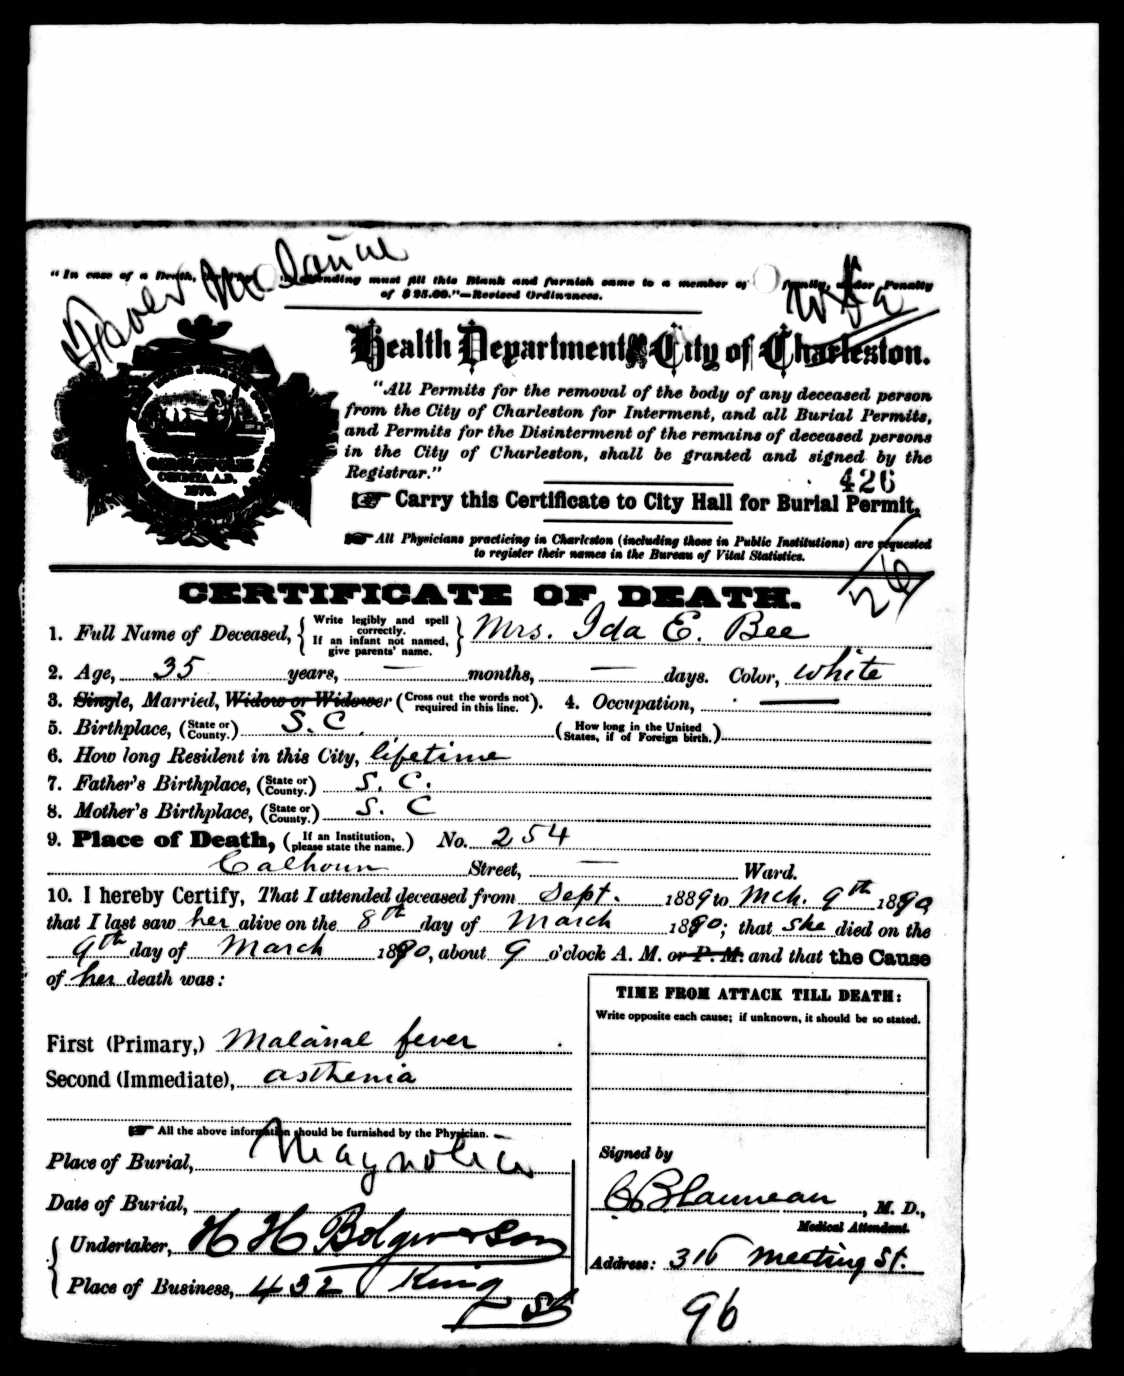 Fever Malarial
"In case of a Death, the attending must fill this Blank and furnish same to a member of family, under Penalty
of $25.00."—Revised Ordinances.
Health Department City of Charleston.
"All Permits for the removal of the body of any deceased person
from the City of Charleston for Interment, and all Burial Permits,
and Permits for the Disinterment of the remains of deceased persons
in the City of Charleston, shall be granted and signed by the
Registrar."
426
Carry this Certificate to City Hall for Burial Permit.
All Physicians practicing in Charleston (including those in Public Institutions) are requested
to register their names in the Bureau of Vital Statistics.
26
CERTIFICATE OF DEATH.
1. Full Name of Deceased, { Write legibly and spell correctly. If an infant not named, give parents' name. } Mrs. Ida E. Bee
2. Age, 35 years, — months, — days. Color, White
3. Single, Married, Widow or Widower (Cross out the words not required in this line.). 4. Occupation, —
5. Birthplace, (State or County.) S. C. (How long in the United States, if of Foreign birth.)
6. How long Resident in this City, lifetime
7. Father's Birthplace, (State or County.) S. C.
8. Mother's Birthplace, (State or County.) S. C
9. Place of Death, (If an Institution, please state the name.) No. 254
Calhoun Street, — Ward.
10. I hereby Certify, That I attended deceased from Sept. 1889 to Mch. 9th 1890
that I last saw her alive on the 8th day of March 1890; that she died on the
9th day of March 1890, about 9 o'clock A. M. or P. M. and that the Cause
of her death was:
TIME FROM ATTACK TILL DEATH:
Write opposite each cause; if unknown, it should be so stated.
First (Primary,) Malarial fever
Second (Immediate), asthenia
All the above information should be furnished by the Physician.
Place of Burial, Magnolia
Date of Burial,
Undertaker, H H Bolger & Son
Place of Business, 432 King St
Signed by
, M. D.,
Medical Attendant.
Address: 316 Meeting St.
96